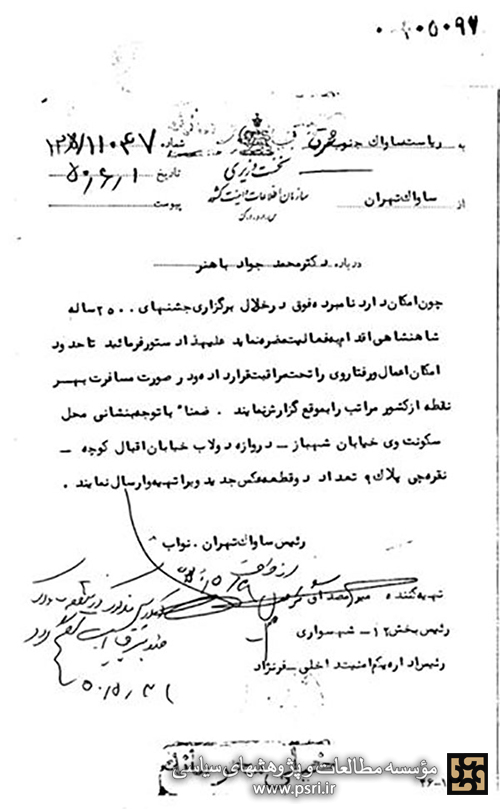 ۰۱۰۵۰۹۷
به ریاست ساواک جنوب شرق شماره ۱۲ﻫ۱۱/۱۱۰۴۷
نخست وزیری
تاریخ ۵۰/۶/۱
از ساواک تهران سازمان اطلاعات و امنیت کشور پیوست
س.ا.و.ا.ک
درباره دکتر محمد جواد باهنر
چون امکان دارد نامبرده فوق در خلال برگزاری جشنهای ۲۵۰۰ ساله
شاهنشاهی اقدام به فعالیت مضره نماید علیهذا دستور فرمائید تا حدود
امکان اعمال و رفتار وی را تحت مراقبت قرار داده و در صورت مسافرت بهر
نقطه از کشور مراتب را بموقع گزارش نمایند . ضمنا" با توجه بنشانی محل
سکونت وی خیابان شهباز – دروازه دولاب خیابان اقبال کوچه –
نقره چی پلاک ۹ تعداد دو قطعه عکس جدید ویرا تهیه و ارسال نمایند .
رئیس ساواک تهران . نواب
تهیه کننده
رئیس بخش ۱۲ – شهسواری
رئیس اداره یکم امنیت داخلی – فرنژاد
۵۰/۵/۳۱
خیلی محرمانه
مؤسسه مطالعات و پژوهشهای سیاسی
www.psri.ir
۲۶-۱